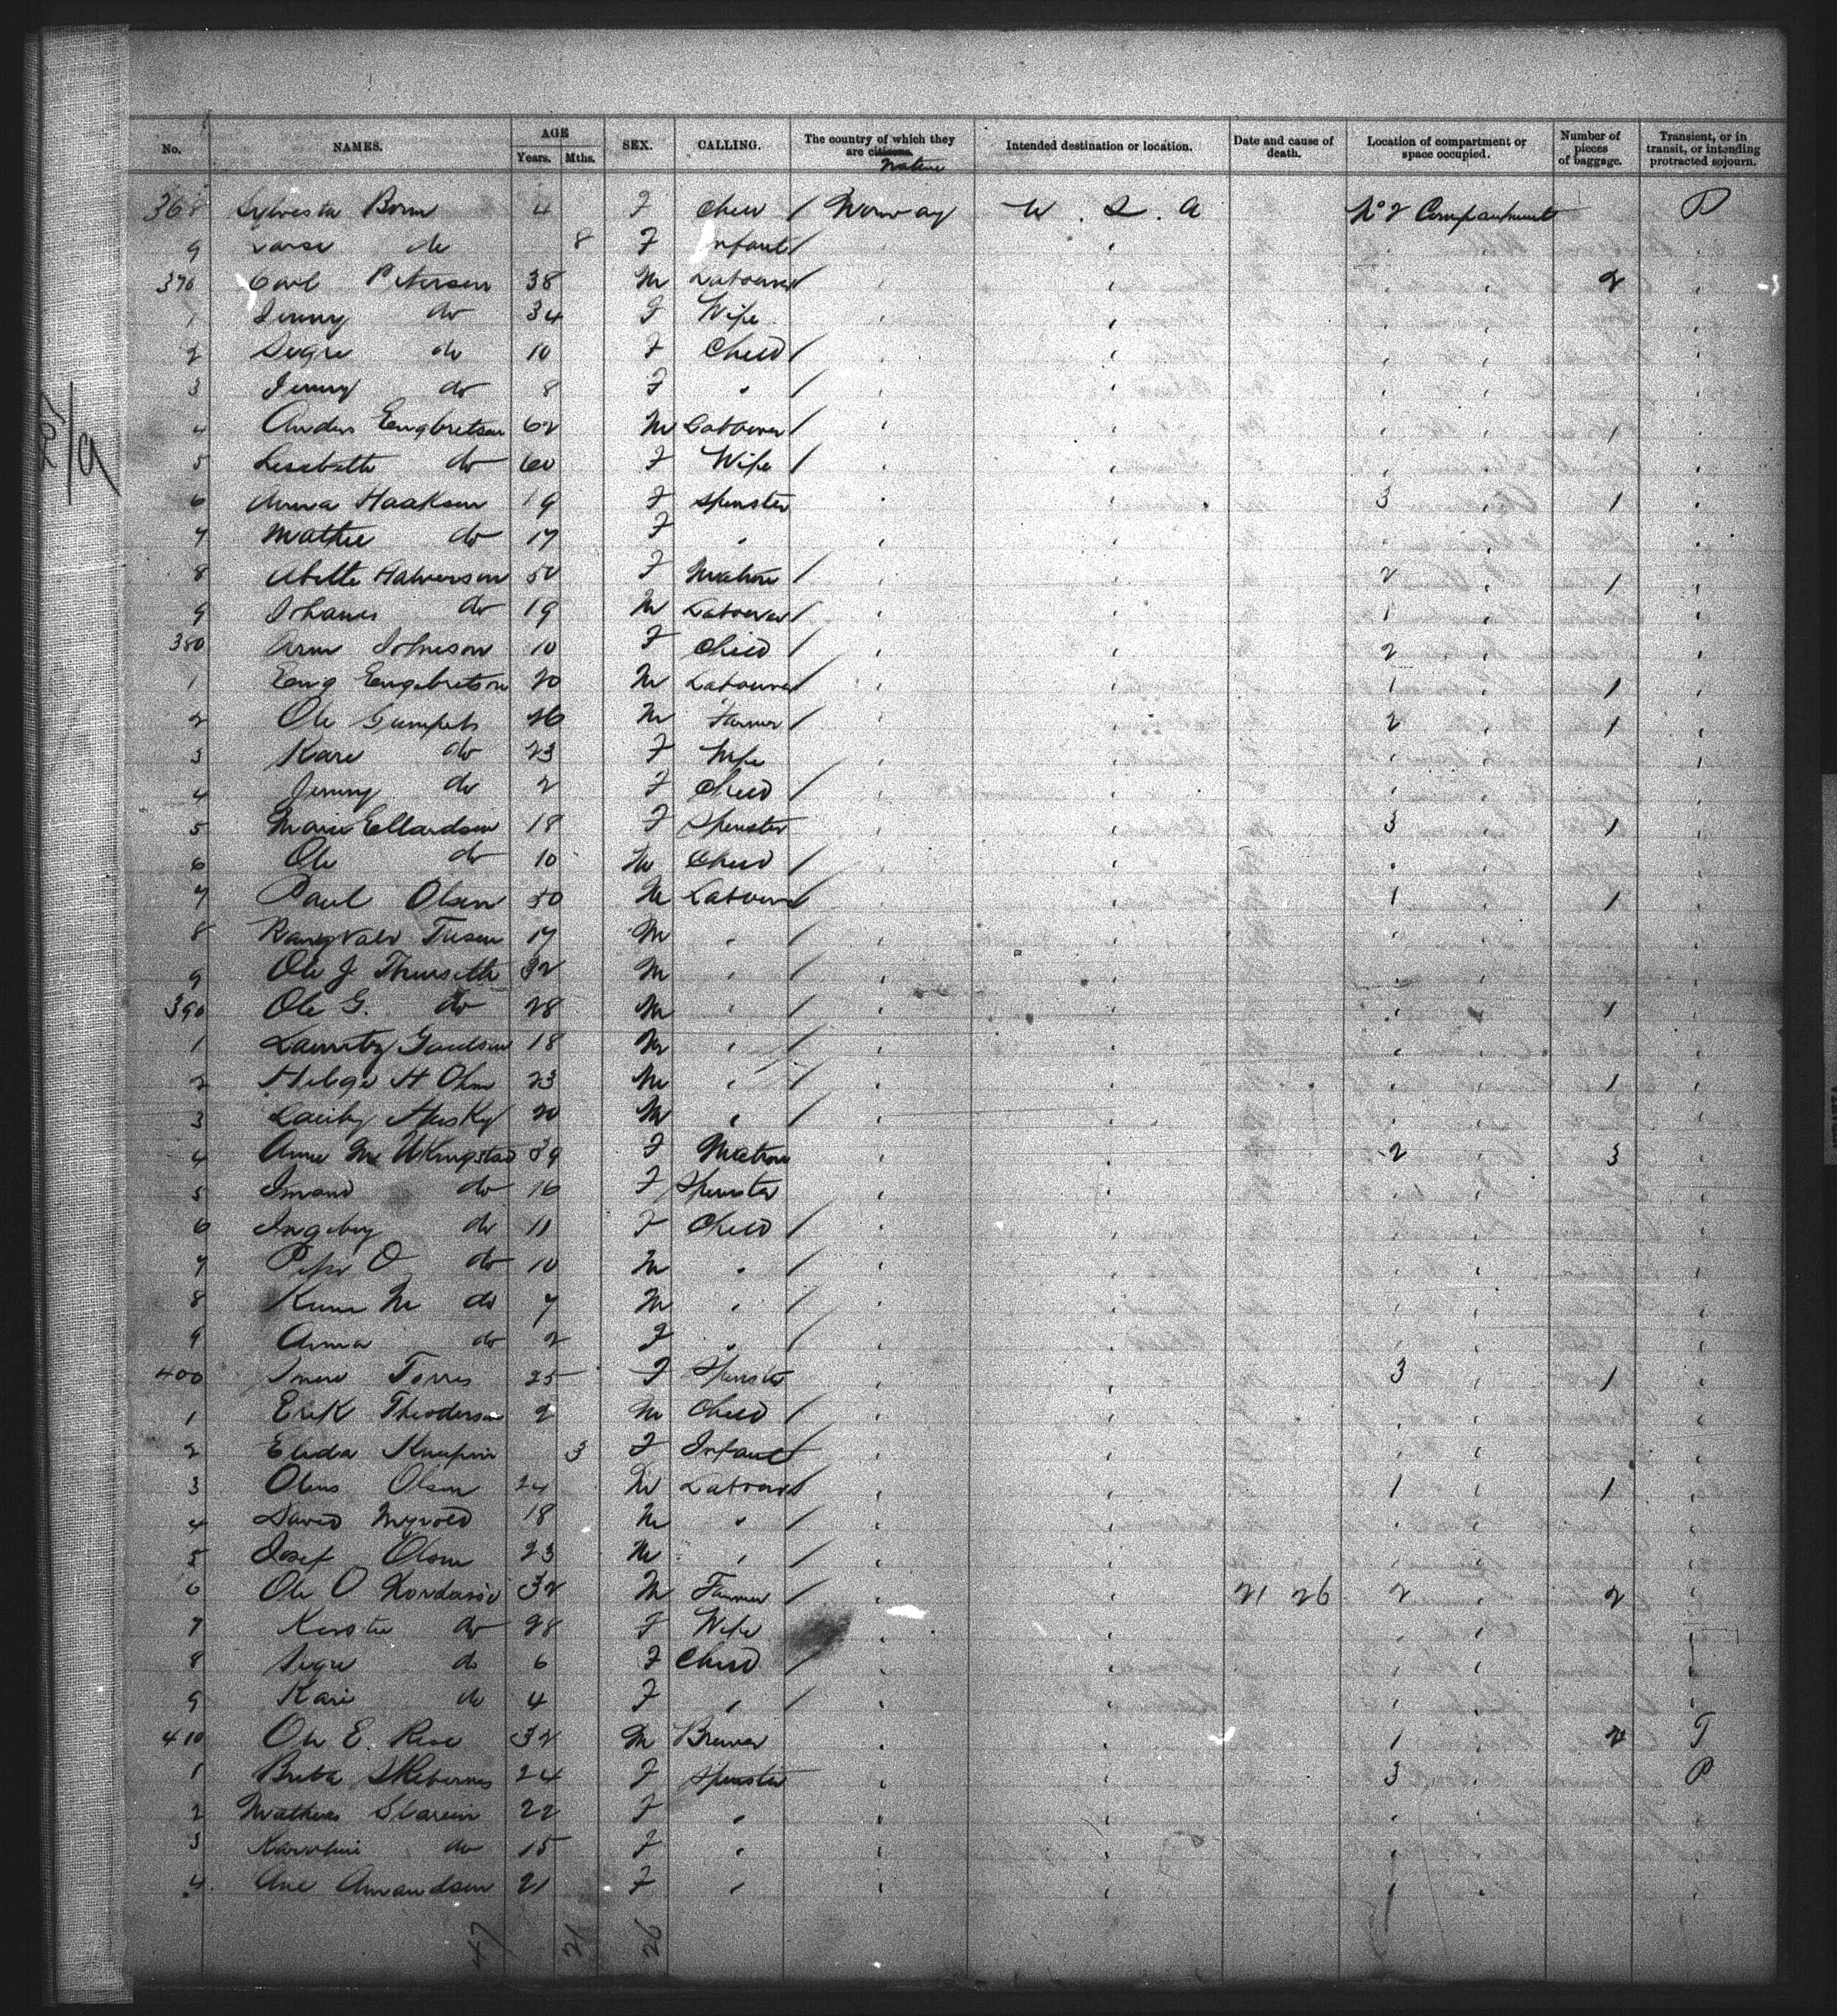 No. NAMES. AGE Years. Mths. SEX. CALLING. The country of which they are citizens. Native Intended destination or location. Date and cause of death. Location of compartment or space occupied. Number of pieces of baggage. Transient, or in transit, or intending protracted sojourn.
368 Sylvesta Born 4 F Child / Norway U. S. A No 2 Compartment P
9 do 8 F Infant /
370 Carl Peterson 38 M Labourer 2
1 Jenny do 34 F Wife
2 Sigri do 10 F Child /
3 Jenny do 8 F " /
4 Anders Eengbretsen 62 M Labourer / 1
5 Lisabeth do 60 F Wife /
6 Anna Haaksen 19 F Spinster 3 1
7 Mathie do 17 F "
8 Abelte Halverson 50 F Matron / 2 1
9 Johanes do 19 M Labourer / 1
380 Arm Johnson 10 F Child / 2
1 Eeng Eengebretson 20 M Labourer 1 1
2 Ole Gumpels 26 M Farmer / 2 1
3 Kare do 23 F Wife
4 Jenny do 2 F Child /
5 Marie Ellardsen 18 F Spinster 3 1
6 Ole do 10 M Child /
7 Paul Olsen 50 M Labourer 1 1
8 Rangvald 17 M " /
9 Ole J Thurseth 32 M " /
390 Ole G. do 28 M " / 1
1 Lauritz 18 M " /
2 Helge H 23 M " / 1
3 20 M " /
4 Anne M 39 F Matron 2 3
5 do 16 F Spinster
6 Ingeborg do 11 F Child /
7 O do 10 M " /
8 M do 7 M " /
9 Anna do 2 F " /
400 Torres 25 F Spinster 3 1
1 Erik Theoderson 2 M Child /
2 Elida 3 F Infant
3 Olous Olsen 24 M Labourer 1 1
4 David Myrold 18 M " /
5 Josef Olsen 23 M " /
6 Ole O 32 M Farmer / 21 26 2 2
7 Kerstie do 28 F Wife
8 Sigri do 6 F Child /
9 Kari do 4 F " /
410 Ole E. 32 M Brewer 1 2 T
1 Brita 24 F Spinster 3 P
2 22 F "
3 Karoline do 15 F "
4 Ane Amundsen 21 F " 1
47 21 26